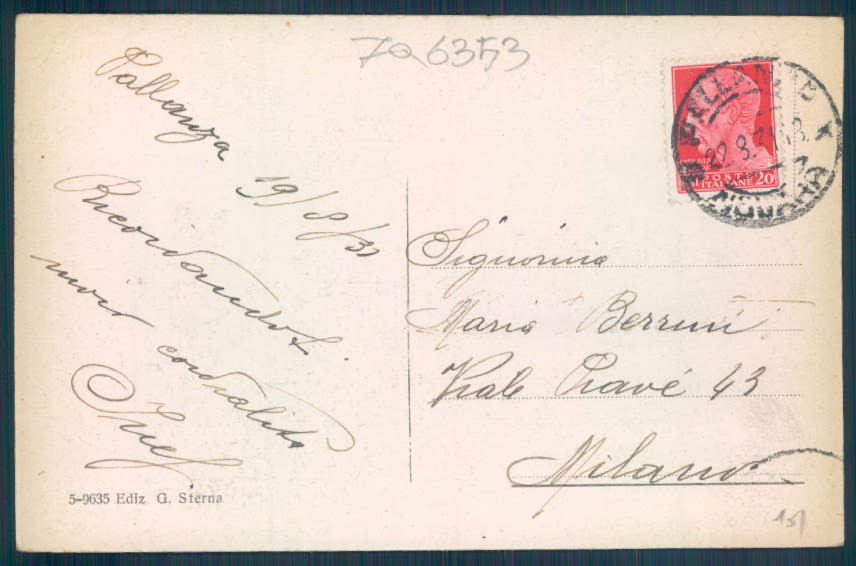 7a6353
Pallanza
19/8/31
Ricordandoti
cordialità
5-9635 Ediz G. Sterna
PALLANZA
22.8.
NOVARA
POSTE
ITALIANE 20
Signorina
Maria Berrini
Viale Piave 43
Milano